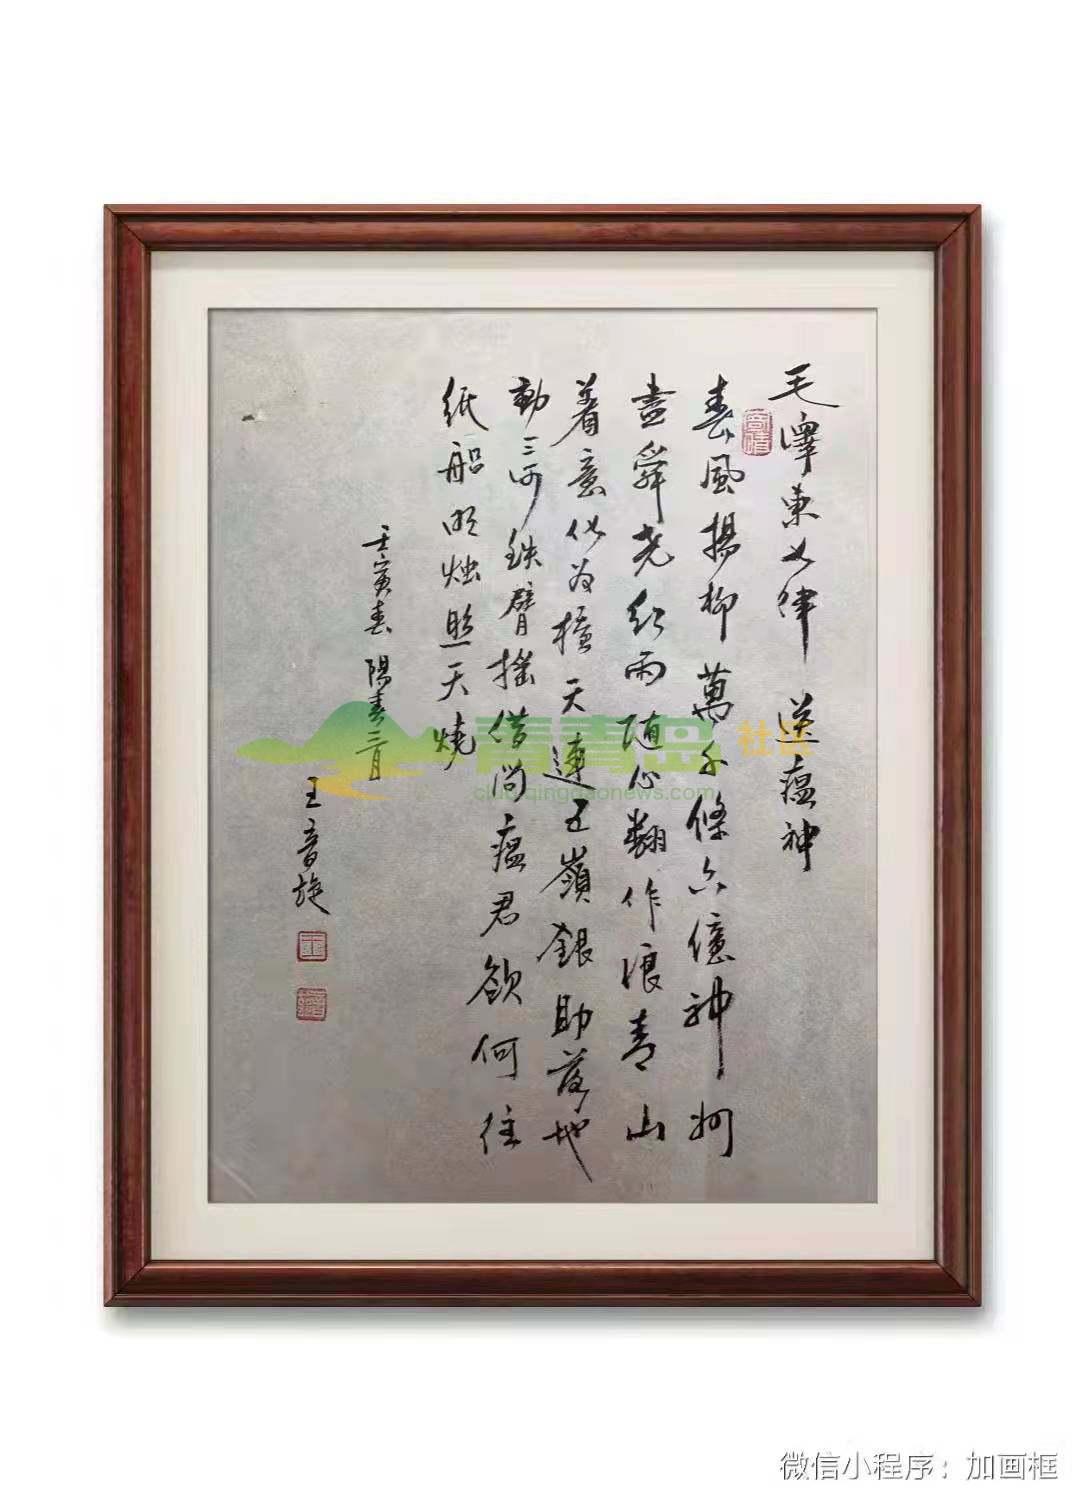 毛澤東七律 送瘟神
春風揚柳萬千條六億神州
盡舜堯红雨随心翻作浪青山
着意化为橋天連五嶺銀助落地
動三河鉄臂摇借问瘟君欲何往
纸船明烛照天燒
壬寅春 陽春三月
王音旋
青青岛 社区
club.qingdaonews.com
微信小程序：加画框